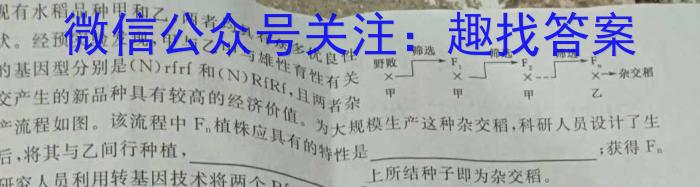 微信公众号关注：趣找答案
现有水稻品种甲和乙，两者
多优良性
状。经预
与雄性育性有关
的基因型分别是(N)rfrf和(N)RfRf,且两者杂
交产生的新品种具有较高的经济价值。为大规模生产这种杂交稻,科研人员设计了生
产流程如图。该流程中Fₙ植株应具有的特性是____;获得Fₙ
后,将其与乙间行种植,____上所结种子即为杂交稻。
研究人员利用转基因技术将两个
野败 筛选 F₁ 筛选 F₂ 筛选 Fₙ
× × ×---× →杂交稻
甲 甲 甲 乙